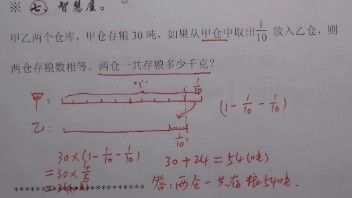 ※ 七、智慧屋。
甲乙两个仓库，甲仓存粮 30 吨，如果从甲仓中取出 1/10 放入乙仓，则
两仓存粮数相等。两仓一共存粮多少千克？
1/10
甲：
(1 - 1/10 - 1/10)
乙：
1/10
30×(1-1/10-1/10)
30+24=54(吨)
=30×4/5
答：两仓一共存粮54吨.